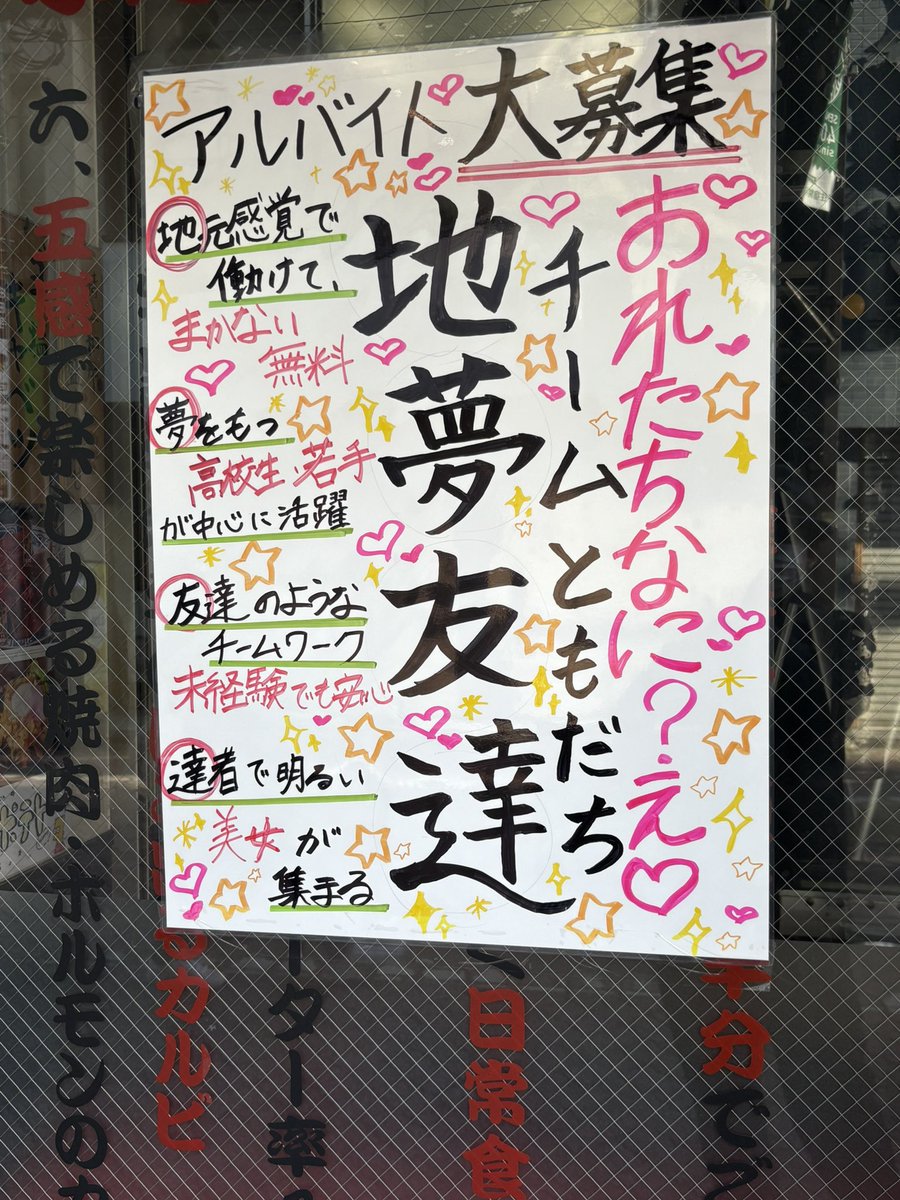 アルバイト大募集
おれたちなに?え♡
チームともだち
地夢友達
地元感覚で
働けて、
まかない
無料
夢をもつ
高校生、若手
が中心に活躍
友達のような
チームワーク
未経験でも安心
達者で明るい
美女が
集まる
六、五感で楽しめる焼肉・ホルモンの
るカルビ
ーター率
日常食
半分でブ